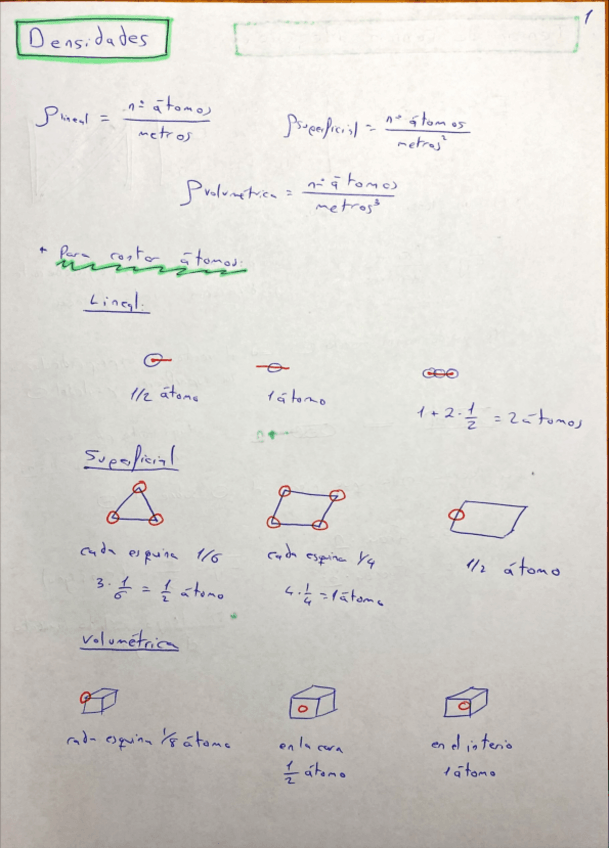 1
Densidades
ρlineal = nº átomos / metros
ρsuperficial = nº átomos / metros²
ρvolumétrica = nº átomos / metros³
* Para contar átomos:
Lineal:
1/2 átomo
1 átomo
1 + 2 · 1/2 = 2 átomos
Superficial
cada esquina 1/6
3 · 1/6 = 1/2 átomo
cada esquina 1/4
4 · 1/4 = 1 átomo
1/2 átomo
Volumétrica
cada esquina 1/8 átomo
en la cara
1/2 átomo
en el interio
1 átomo